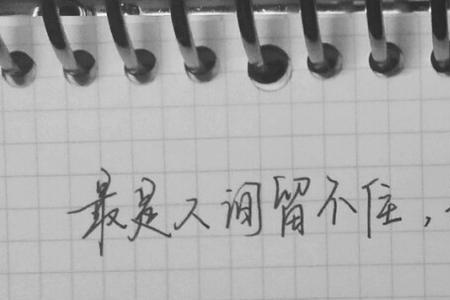 最是人间留不住，